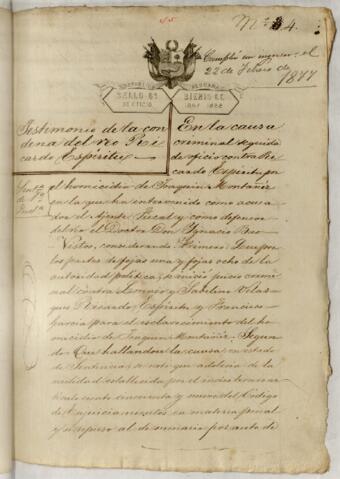 55
Nº 34.
Cumplió su menor el
22 de Febrero de
1877
SELLO 6º
DE OFICIO
BIENIO DE
1867 1868
Testimonio de la con
dena del reo Ri
cardo Espíritu
En la causa
criminal seguida
de oficio contra Ri
cardo Espíritu por
el homicidio de Joaquin Montañez
en la que ha intervenido como acusa
dor el Ajente Fiscal y como defensor
del reo el Doctor Don Ignacio
Vistos, considerando Primero: Que por
los partes de fojas una y fojas ocho de la
autoridad politica, se inició juicio crimi
nal contra y Sabelino Velas
ques Ricardo Espíritu y Francisco
Garcia para el esclarecimiento del ho
micidio de Joaquin Montañez. Segun
do Que hallandose la causa en estado
de Sentencia se notó que adolecia de
la nulidad establecida por el inciso tercero ar
ticulo ciento cincuenta y nueve del Código
de Enjuiciamientos en materia penal
y se repuso al de sumario por auto de